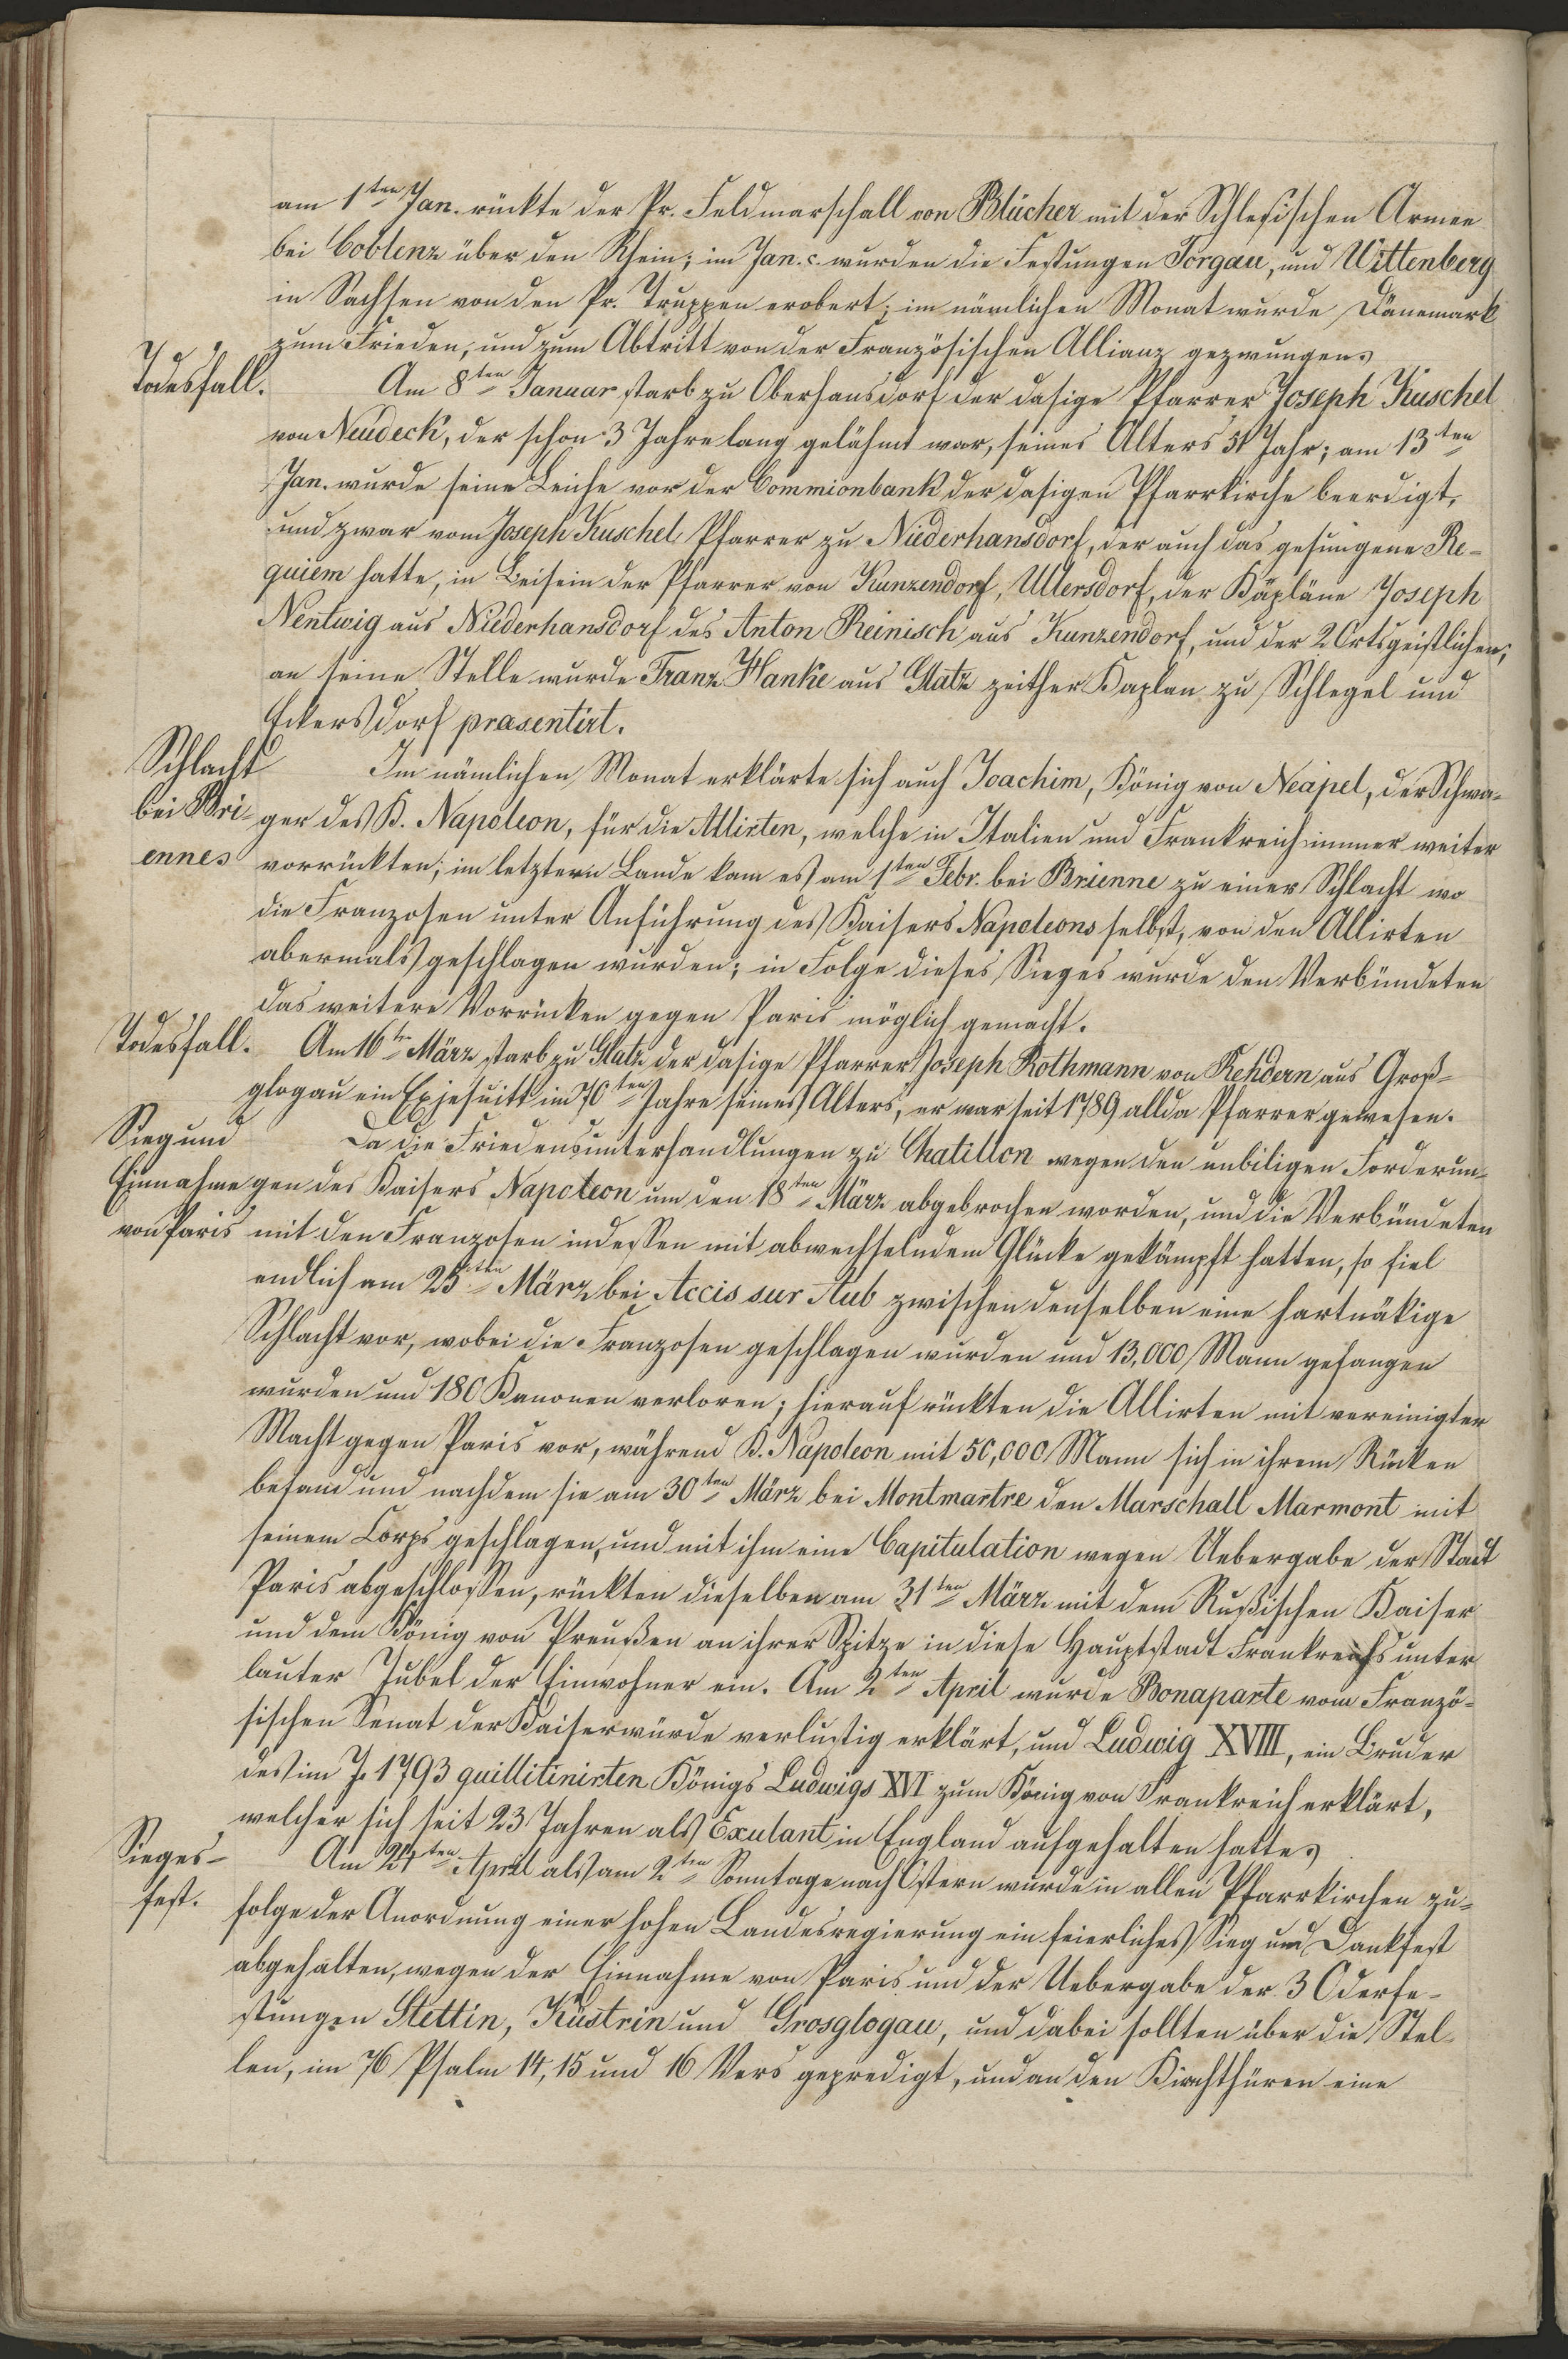 am 1ten Jan. rückte der Pr. Feldmarschall von Blücher mit der Schlesischen Armee
bei Coblenz über den Rhein; im Jan. c. wurden die Festungen Torgau, und Wittenberg
in Sachsen von den Pr. Truppen erobert; im nämlichen Monat wurde Dänemark
zum Frieden, und zum Abtritt von der Französischen Allianz gezwungen.
Todesfall.
Am 8ten Januar starb zu Oberhansdorf der dasige Pfarrer Joseph Kuschel
von Neudeck, der schon 3 Jahre lang gelähmt war, seines Alters 51 Jahr; am 13ten
Jan. wurde seine Leiche vor der Commionbank der dasigen Pfarrkirche beerdigt,
und zwar vom Joseph Kuschel Pfarrer zu Niederhansdorf, der auch das gesungene Re-
quiem hatte, in Beisein der Pfarrer von Kunzendorf, Ullersdorf, der Käpläne Joseph
Nentwig aus Niederhansdorf des Anton Reinisch aus Kunzendorf, und der 2 Ortsgeistlichen;
an seine Stelle wurde Franz Hanke aus Glatz zeither Kaplan zu Schlegel und
Eckersdorf prasentirt.
Schlacht
bei Bri-
ennes
Im nämlichen Monat erklärte sich auch Joachim, König von Neapel, der Schwa-
ger des K. Napoleon, für die Allirten, welche in Italien und Frankreich immer weiter
vorrückten; im letztern Lande kam es am 1ten Febr. bei Brienne zu einer Schlacht wo
die Franzosen unter Anführung des Kaisers Napoleons selbst, von den Allirten
abermals geschlagen wurden; in Folge dieses Sieges wurde den Verbündeten
das weitere Vorrücken gegen Paris möglich gemacht.
Todesfall.
Am 16ten März starb zu Glatz der dasige Pfarrer Joseph Rothmann von Rehdern aus Groß-
glogau ein Exjesuitt im 70ten Jahre seines Alters, er war seit 1789 allda Pfarrer gewesen.
Sieg und
Einnahme
von Paris
Da die Friedensunterhandlungen zu Chatillon wegen den unbiligen Forderun-
gen des Kaisers Napoleon um den 18ten März abgebrochen worden, und die Verbündeten
mit den Franzosen indessen mit abwechselndem Glücke gekämpft hatten, so fiel
endlich am 25ten März bei Accis sur Aub zwischen denselben eine hartnäkige
Schlacht vor, wobei die Franzosen geschlagen wurden und 13,000 Mann gefangen
wurden und 180 Kanonen verloren; hierauf rückten die Allirten mit vereinigter
Macht gegen Paris vor, während K. Napoleon mit 50,000 Mann sich in ihrem Rücken
befand und nachdem sie am 30ten März bei Montmartre den Marschall Marmont mit
seinem Corps geschlagen, und mit ihm eine Capitulation wegen Uebergabe der Stadt
Paris abgeschlossen, rückten dieselben am 31ten März mit dem Rußischen Kaiser
und dem König von Preußen an ihrer Spitze in diese Hauptstadt Frankreichs unter
lauter Jubel der Einwohner ein. Am 2ten April wurde Bonaparte vom Franzö-
sischen Senat der Kaiserwürde verlustig erklärt, und Ludwig XVIII, ein Bruder
des im J. 1793 quillitinirten Königs Ludwigs XVI zum König von Frankreich erklärt,
welcher sich seit 23 Jahren als Exulant in England aufgehalten hatte.
Sieges-
fest.
Am 24ten April als am 2ten Sonntage nach Ostern wurde in allen Pfarrkirchen zu-
folge der Anordnung einer hohen Landesregierung ein feierliches Sieg und Dankfest
abgehalten, wegen der Einnahme von Paris und der Uebergabe der 3 Oderfe-
stungen Stettin, Küstrin und Grosglogau, und dabei sollten über die Stel-
len, im 76 Psalm 14, 15 und 16 Vers gepredigt, und an den Kirchthüren eine